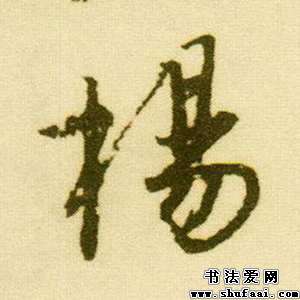 楊
书法爱网
www.shufaai.com